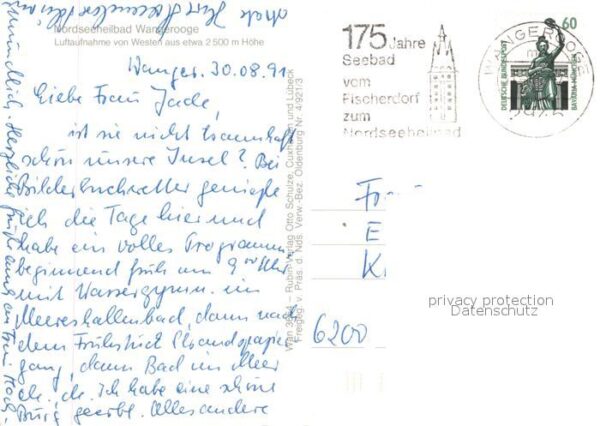 Nordseeheilbad Wangerooge
Luftaufnahme von Westen aus etwa 2500 m Höhe
Wanger. 30.08.91
Liebe Frau Jade,
ist sie nicht traumhaft
schön unsere Insel? Bei
Bilderbuchwetter genieße
ich die Tage hier und
habe ein volles Programm,
beginnend früh um 9 00 Uhr
mit Wassergymn. im
Meereshallenbad, dann nach
dem Frühstück Strandspazier
gang, dann Bad im Meer
etc. etc. Ich habe eine schöne
Burg geerbt. Alles andere
mündlich. Herzliche Grüße
an Frau
Wran 30 – Rubin-Verlag Otto Schulze, Cuxhaven und Lübeck
Freigeg. v. Präs. d. Nds. Verw.-Bez. Oldenburg Nr. 4/921/3
175 Jahre
Seebad
vom
Fischerdorf
zum
Nordseeheilbad
WANGEROOGE
60
DEUTSCHE BUNDESPOST
BAVARIA MÜNCHEN
F
E
K
6200
privacy protection
Datenschutz